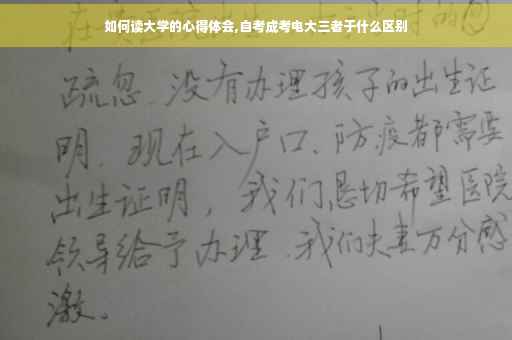 如何读大学的心得体会,自考成考电大三者于什么区别
疏忽.没有办理孩子的出生证
明.现在入户口、防疫都需要
出生证明，我们恳切希望医院
领导给予办理.我们夫妻万分感
激。